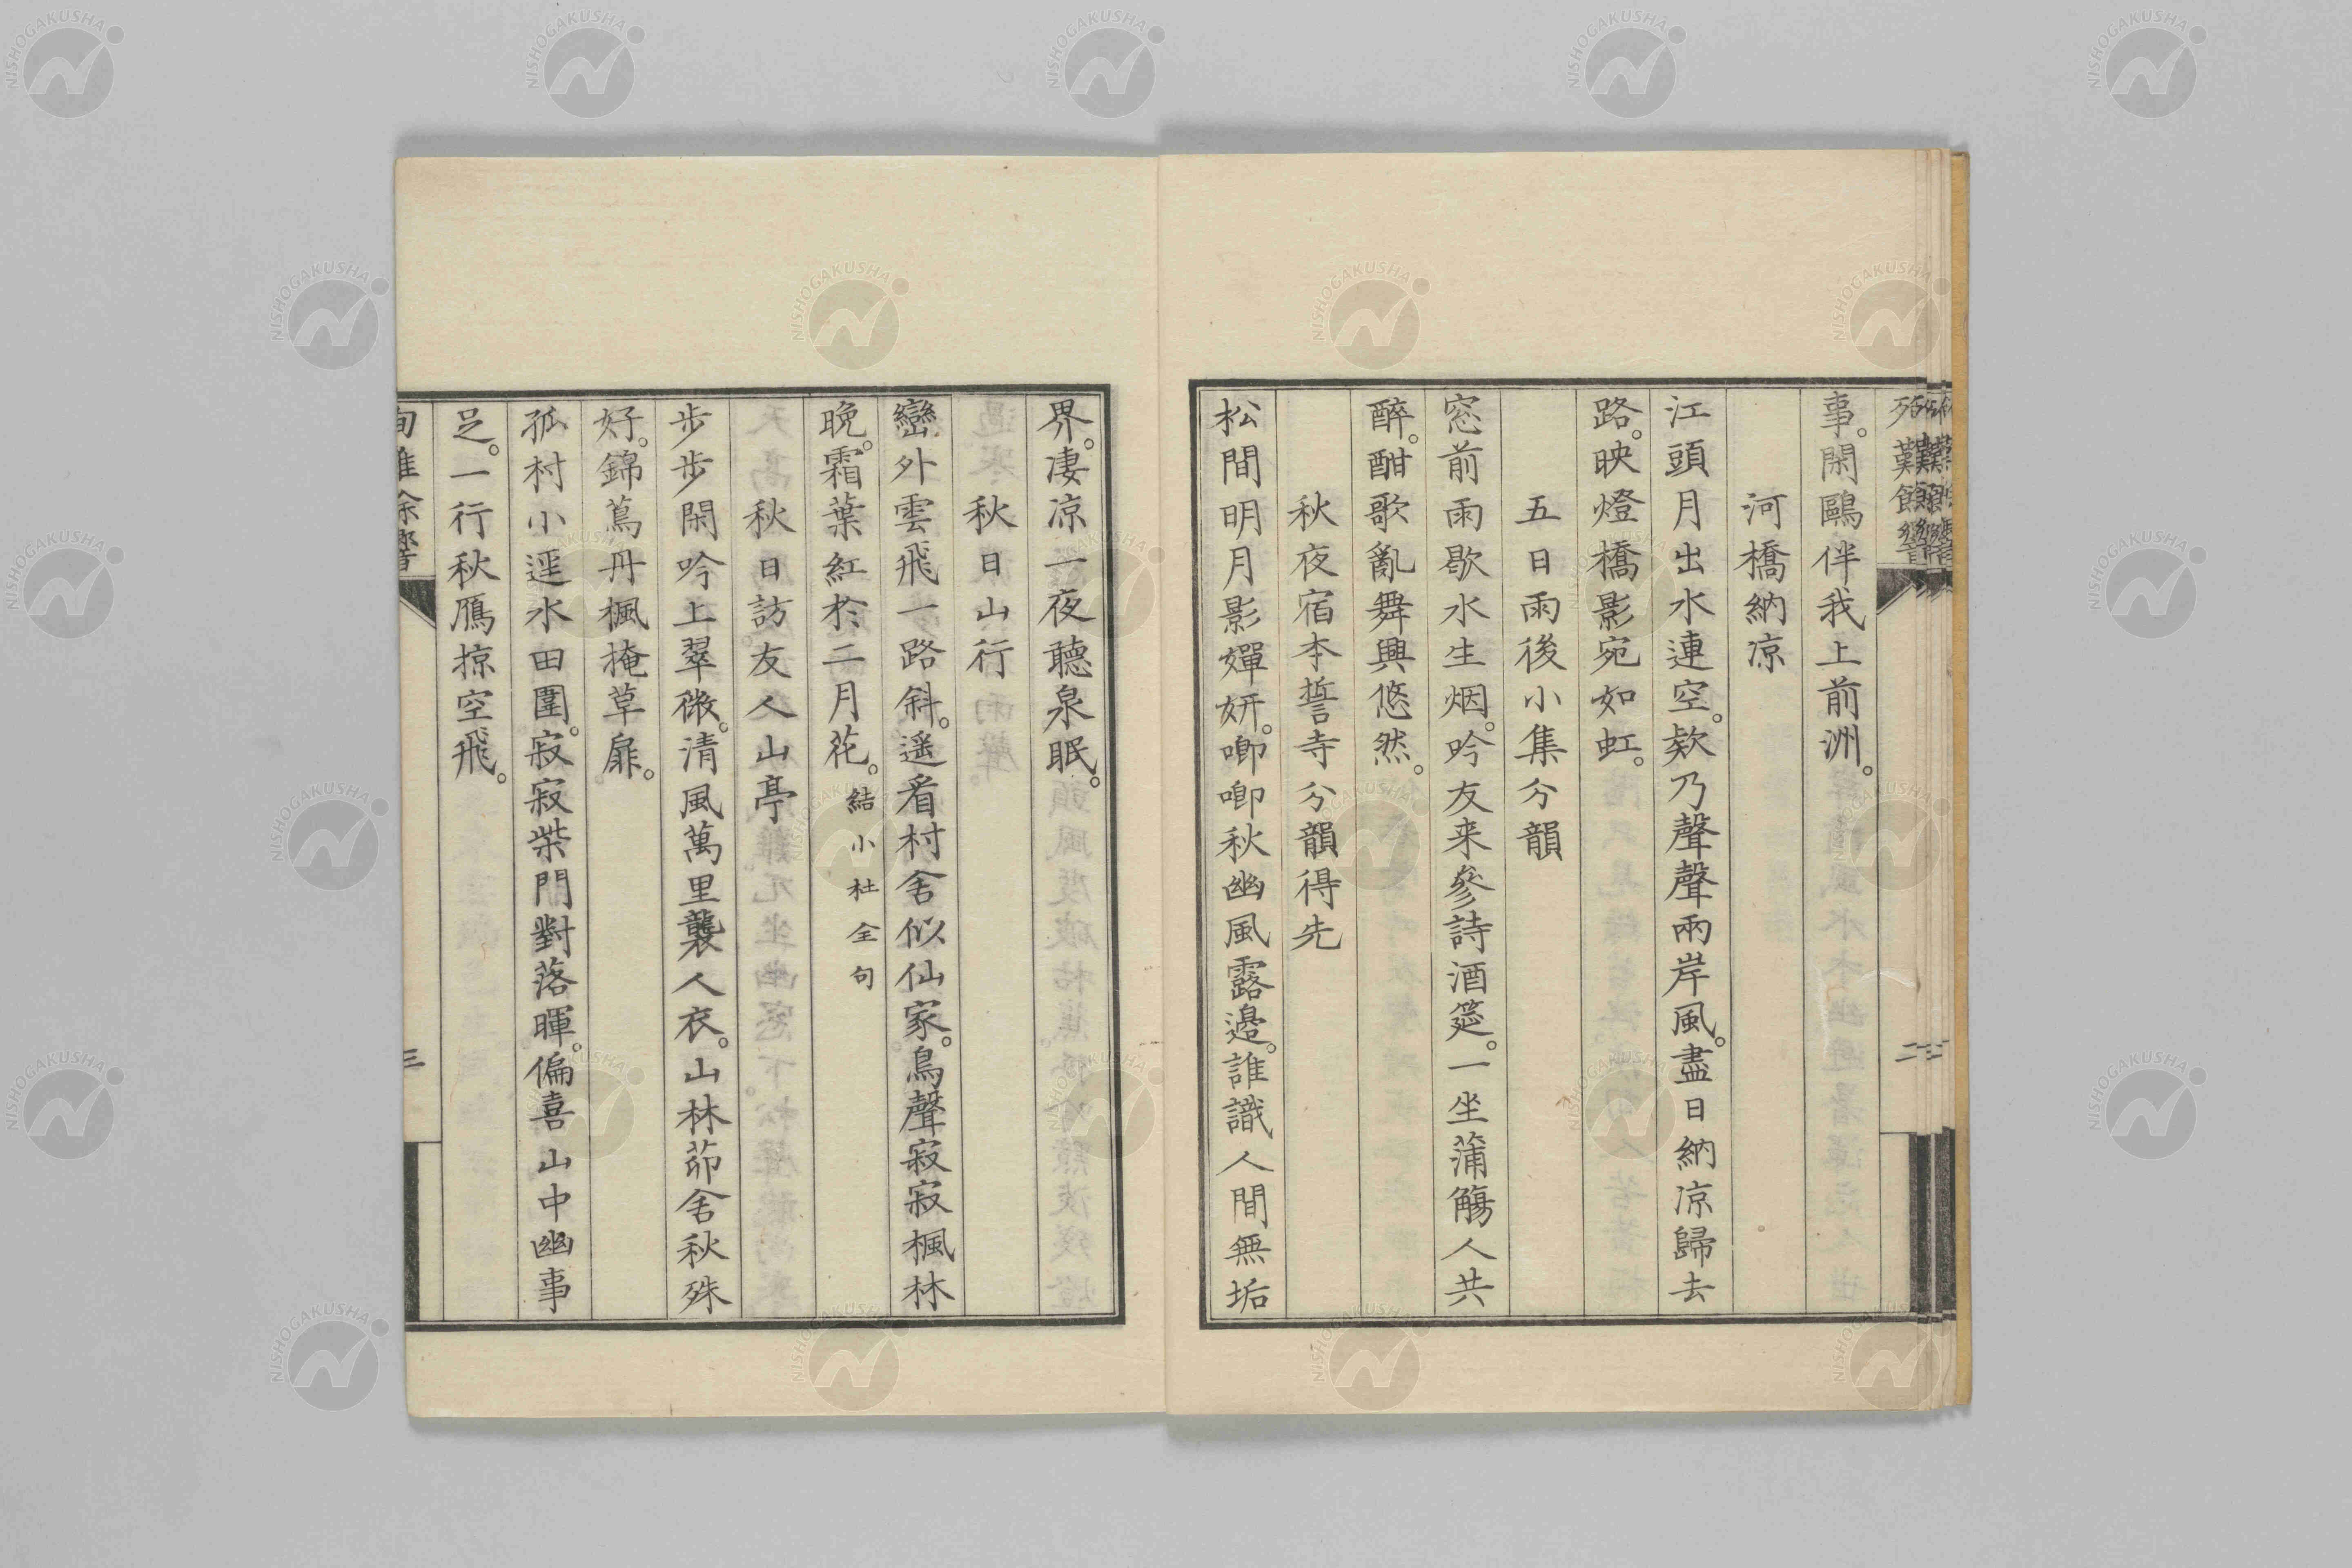 事。閑鷗伴我上前洲。
河橋納凉
江頭月出水連空。欸乃聲聲兩岸風。盡日納凉歸去
路。映燈橋影宛如虹。
五日雨後小集分韻
窓前雨歇水生烟。吟友来參詩酒筵。一坐蒲觴人共
醉。酣歌亂舞興悠然。
秋夜宿本誓寺分韻得先
松間明月影嬋妍。喞喞秋幽風露邊。誰識人間無垢
界。淒凉一夜聽泉眠。
秋日山行
巒外雲飛一路斜。遥看村舍似仙家。鳥聲寂寂楓林
晩。霜葉紅於二月花。結小杜全句
秋日訪友人山亭
步步閑吟上翠微。清風萬里襲人衣。山林茆舍秋殊
好。錦蔦丹楓掩草扉。
孤村小逕水田圍。寂寂柴門對落暉。偏喜山中幽事
足。一行秋鴈掠空飛。
三
NISHOGAKUSHA